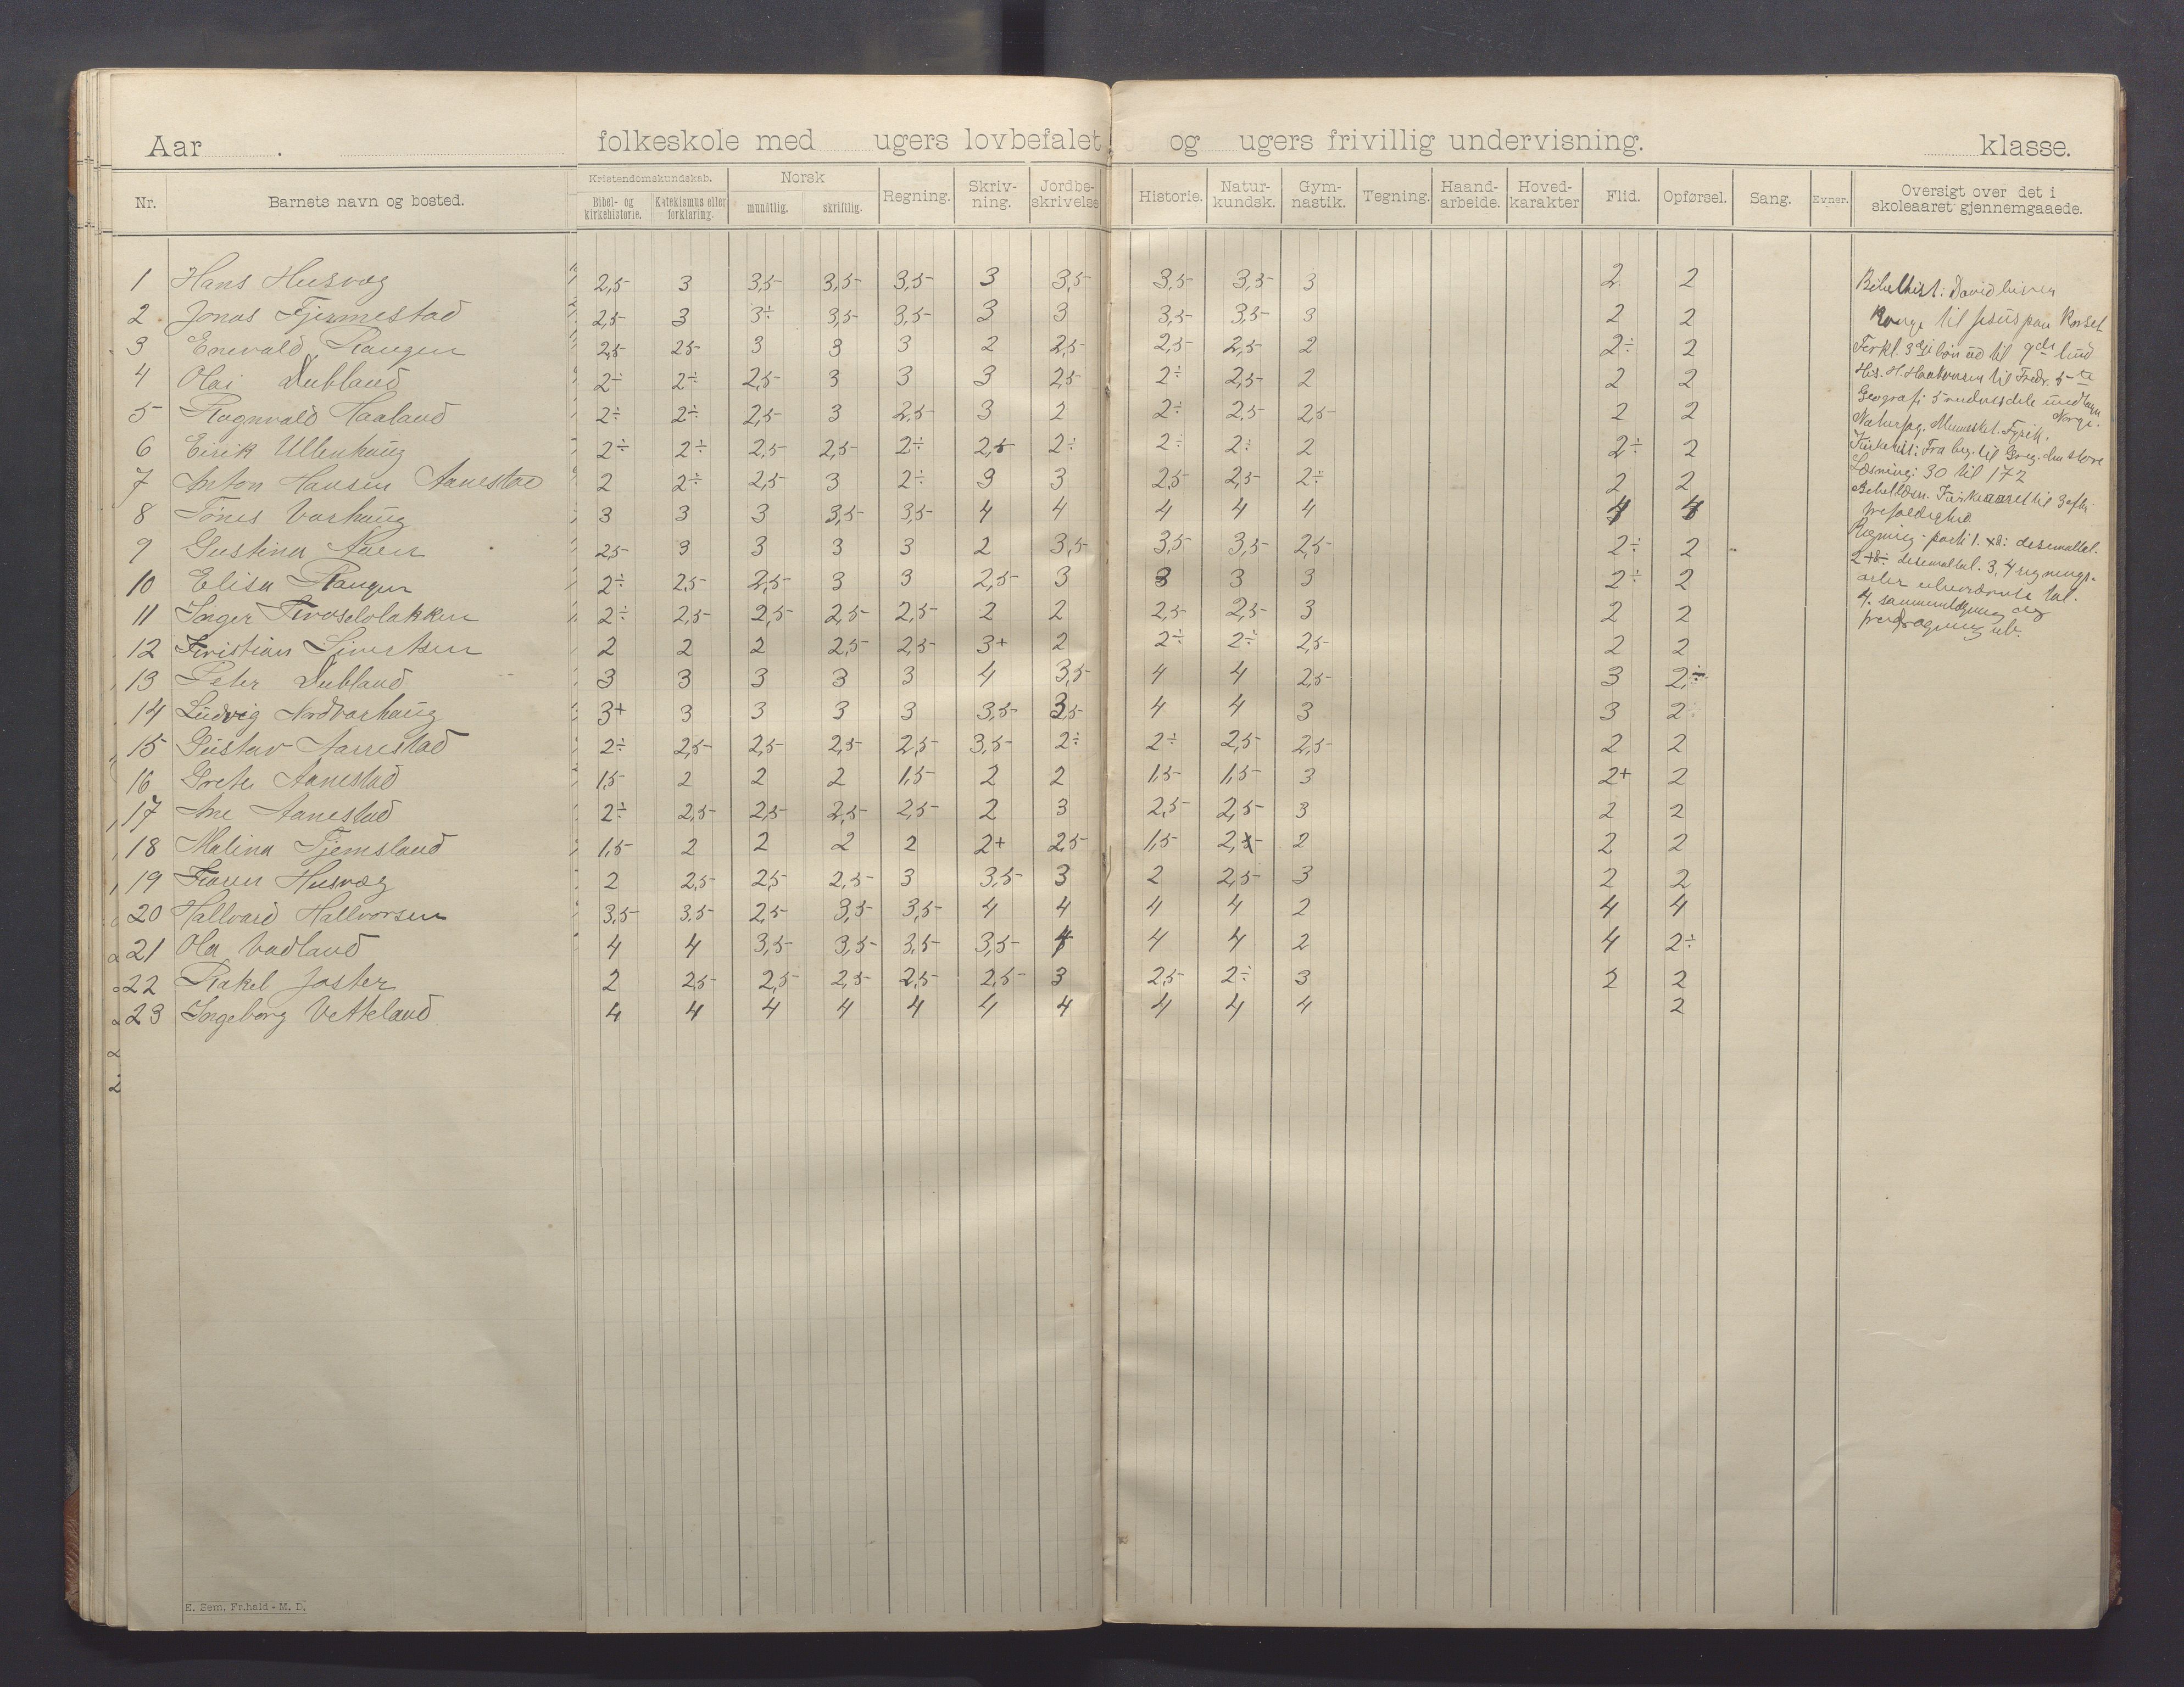 Aar . folkeskole med ugers lovbefalet og ugers frivillig undervisning. klasse.
Nr. Barnets navn og bosted. Kristendomskundskab. Bibel- og kirkehistorie. Katekismus eller forklaring. Norsk mundtlig. skriftlig. Regning. Skriv-ning. Jordbe-skrivelse Historie. Natur-kundsk. Gym-nastik. Tegning. Haand-arbeide. Hoved-karakter Flid. Opførsel. Sang. Evner. Oversigt over det i skoleaaret gjennemgaaede.
1 Hans Husvæg 2,5 3 3,5 3,5 3,5 3 3,5 3,5 3,5 3 2 2
2 Jonas Tjermestad 2,5 3 3÷ 3,5 3,5 3 3 3,5 3,5 3 2 2
3 Enevald Rangen 2,5 25 3 3 3 2 2,5 2,5 2,5 2 2÷ 2
4 Olai Dubland 2÷ 2÷ 2,5 3 3 3 25 2÷ 2,5 2 2 2
5 Ragnvald Haaland 2÷ 2÷ 2,5 3 2,5 3 2 2÷ 2,5 2,5 2 2
6 Eirik Ullenhaug 2÷ 2÷ 2,5 2,5 2÷ 2,5 2÷ 2÷ 2÷ 2 2÷ 2
7 Anton Hansen Aanestad 2 2÷ 2,5 3 2÷ 3 3 25 2,5 2÷ 2 2
8 Tønes Varhaug 3 3 3 3,5 3,5 4 4 4 4 4 4 4
9 Gustina 25 3 3 3 3 2 3,5 3,5 3,5 2,5 2÷ 2
10 Elisa Rangen 2÷ 2,5 2,5 3 3 2,5 3 3 3 3 2÷ 2
11 Inger 2÷ 2,5 2,5 2,5 2,5 2 2 2,5 2,5 3 2 2
12 Kristian Sivertsen 2 2 2 2,5 2,5 3+ 2 2÷ 2÷ 2,5 2 2
13 Peter Dubland 3 3 3 3 3 4 3,5 4 4 2,5 3 2,÷
14 Ludvig Nordvarhaug 3+ 3 3 3 3 3,5 3,5 4 4 3 3 2
15 Gustav Aarrestad 2÷ 2,5 2,5 2,5 2,5 3,5 2÷ 2÷ 2,5 2,5 2 2
16 Grete Aanestad 1,5 2 2 2 1,5 2 2 1,5 1,5 3 2+ 2
17 Ane Aanestad 2÷ 2,5 2,5 2,5 2,5 2 3 2,5 2,5 3 2 2
18 Malina Tjemsland 1,5 2 2 2 2 2+ 2,5 1,5 2 2 2
19 Karen Husvæg 2 2,5 2,5 2,5 3 3,5 3 2 2,5 3 2 2
20 Hallvard Hallvorsen 3,5 3,5 2,5 3,5 3,5 4 4 4 4 2 4 4
21 Ola Vadland 4 4 3,5 3,5 3,5 3,5 4 4 4 2 4 2÷
22 Rakel Joster 2 2,5 2,5 2,5 2,5 2,5 3 2,5 2÷ 3 2 2
23 Ingeborg Vetteland 4 4 4 4 4 4 4 4 4 4 2
Bibelhist: David
Konge til Jesus paa Korset
Forkl. 3die bøn ud til 9de bud
His. H. Haakonsen til Fredr. 5te
Geografi
Norge.
Naturfag. Mennesket. Fysik.
Kirkehist: Fra beg. til Greg. den store
Læsning: 30 til 172
Bibellæsn. Kirkeaaret til 3 efter
trefoldighed
Regning: parti 1. desemaltal.
2 desemaltal. 3, 4 regnings-
arter ubenævnte tal.
4. sammenlægning og
fradragning ub.
E. Sem. Fr.hald - M. D.